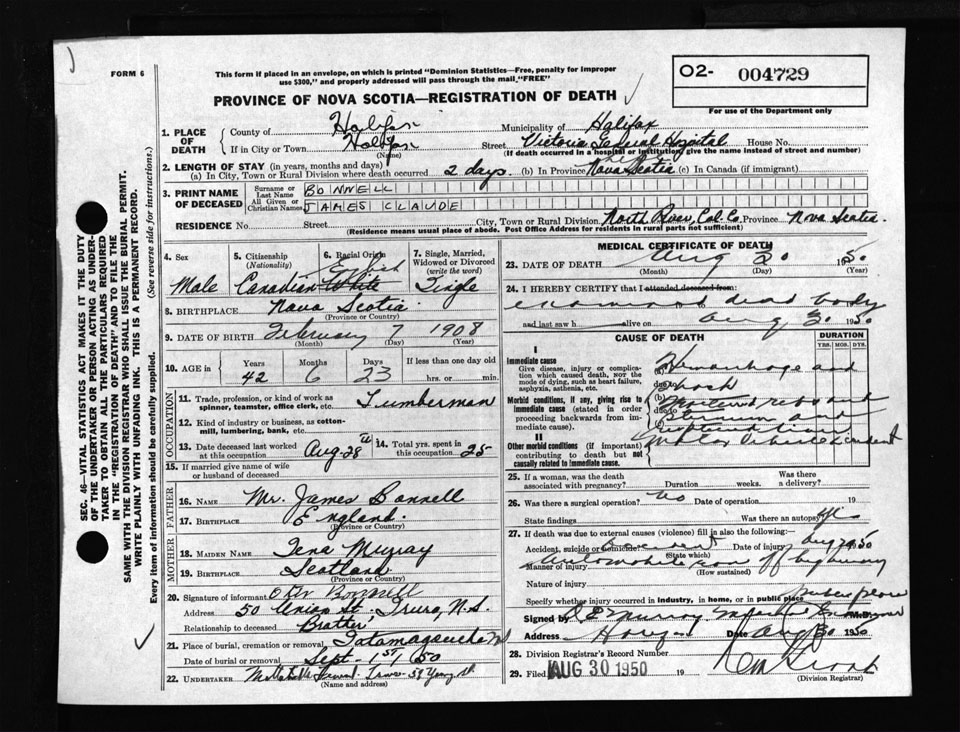 FORM 6
This form if placed in an envelope, on which is printed "Dominion Statistics—Free, penalty for improper
use $300," and properly addressed will pass through the mail "FREE"
O2- 004729
For use of the Department only
PROVINCE OF NOVA SCOTIA—REGISTRATION OF DEATH
1. PLACE OF DEATH
County of Halifax Municipality of Halifax
If in City or Town Halifax (Name) Street Victoria General Hospital House No.
(If death occurred in a hospital or institution, give the name instead of street and number)
2. LENGTH OF STAY (in years, months and days)
(a) In City, Town or Rural Division where death occurred 2 days. (b) In Province Nova Scotia (c) In Canada (if immigrant)
3. PRINT NAME OF DECEASED
Surname or Last Name BONNELL
All Given or Christian Names JAMES CLAUDE
RESIDENCE No. Street City, Town or Rural Division North River, Col. Co. Province Nova Scotia
(Residence means usual place of abode. Post Office Address for residents in rural parts not sufficient)
4. Sex Male
5. Citizenship (Nationality) Canadian
6. Racial Origin English White
7. Single, Married, Widowed or Divorced (write the word) Single
8. BIRTHPLACE Nova Scotia
(Province or Country)
9. DATE OF BIRTH February 7 1908
(Month) (Day) (Year)
10. AGE in Years 42 Months 6 Days 23 If less than one day old hrs. or min.
OCCUPATION
11. Trade, profession, or kind of work as spinner, teamster, office clerk, etc. Lumberman
12. Kind of industry or business, as cotton-mill, lumbering, bank, etc.
13. Date deceased last worked at this occupation Aug-28th
14. Total yrs. spent in this occupation 25
15. If married give name of wife or husband of deceased
FATHER
16. NAME Mr. James Bonnell
17. BIRTHPLACE England
(Province or Country)
MOTHER
18. MAIDEN NAME Tena Murray
19. BIRTHPLACE Scotland
(Province or Country)
20. Signature of informant Otis Bonnell
Address 50 Union St. Truro, N.S.
Relationship to deceased Brother
21. Place of burial, cremation or removal Tatamagouche NS
Date of burial or removal Sept-1st/50
22. UNDERTAKER
(Name and address)
MEDICAL CERTIFICATE OF DEATH
23. DATE OF DEATH Aug 30 1950
(Month) (Day) (Year)
24. I HEREBY CERTIFY that I attended deceased from:
examined dead body
and last saw h alive on Aug 30 1950
CAUSE OF DEATH
DURATION
YRS. MOS. DYS.
I
Immediate cause
Give disease, injury or complication which caused death, NOT the mode of dying, such as heart failure, asphyxia, asthenia, etc.
(a) Hemorrhage and
due to shock
Morbid conditions, if any, giving rise to immediate cause (stated in order proceeding backwards from immediate cause).
(b) Fractured ribs and
due to sternum and
II
Other morbid conditions (if important) contributing to death but not causally related to immediate cause.
Motor Vehicle accident
25. If a woman, was the death associated with pregnancy? Duration weeks. Was there a delivery?
26. Was there a surgical operation? no Date of operation 19
State findings Was there an autopsy? yes
27. If death was due to external causes (violence) fill in also the following:
Accident, suicide or homicide? accident Date of injury Aug 1950
(State which)
Manner of injury Automobile ran off highway
(How sustained)
Nature of injury
Specify whether injury occurred in industry, in home, or in public place public place
Signed by Murray M.D.
Address Date Aug 30 1950
28. Division Registrar's Record Number
29. Filed AUG 30 1950 19
(Division Registrar)
SEC. 46—VITAL STATISTICS ACT MAKES IT THE DUTY
OF THE UNDERTAKER OR PERSON ACTING AS UNDER-
TAKER TO OBTAIN ALL THE PARTICULARS REQUIRED
IN THE "REGISTRATION OF DEATH" AND TO FILE THE
SAME WITH THE DIVISION REGISTRAR WHO SHALL ISSUE THE BURIAL PERMIT.
WRITE PLAINLY WITH UNFADING INK. THIS IS A PERMANENT RECORD.
Every item of information should be carefully supplied. (See reverse side for instructions.)